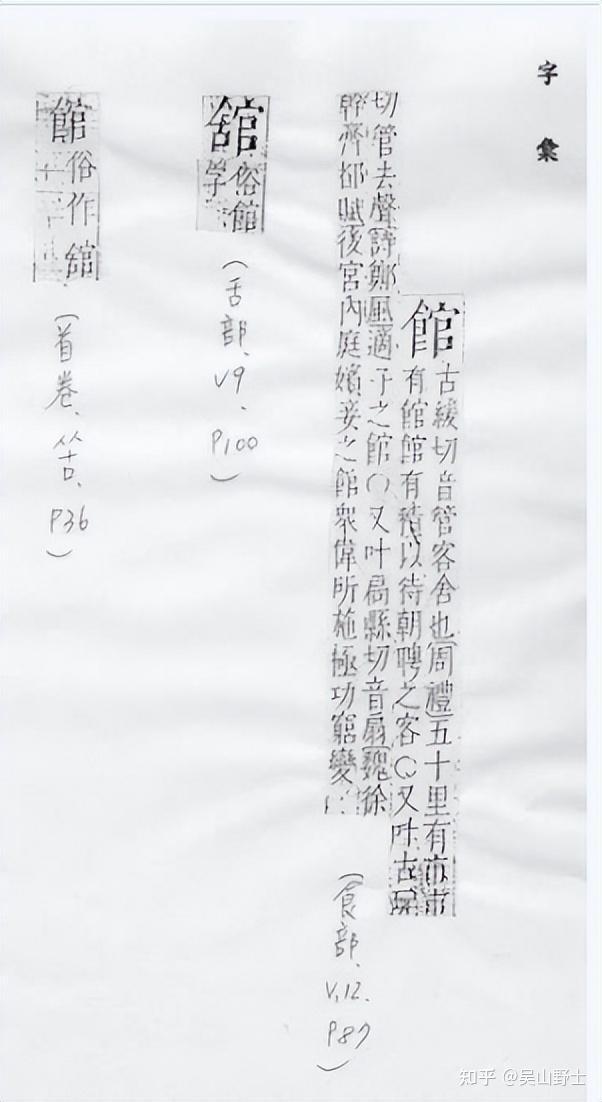 字彙
館
古緩切音管客舍也周禮五十里有市市
有館館有積以待朝聘之客〇又叶古玩
切管去聲詩鄭風適子之館〇又叶縣切音魏徐
幹齊都賦後宮內庭嬪妾之館衆偉所施極功窮變
(食部、V.12. P87)
舘
俗館
字
(舌部、V9、P100)
館
俗作舘
(首卷、P36)
知乎 @吴山野士